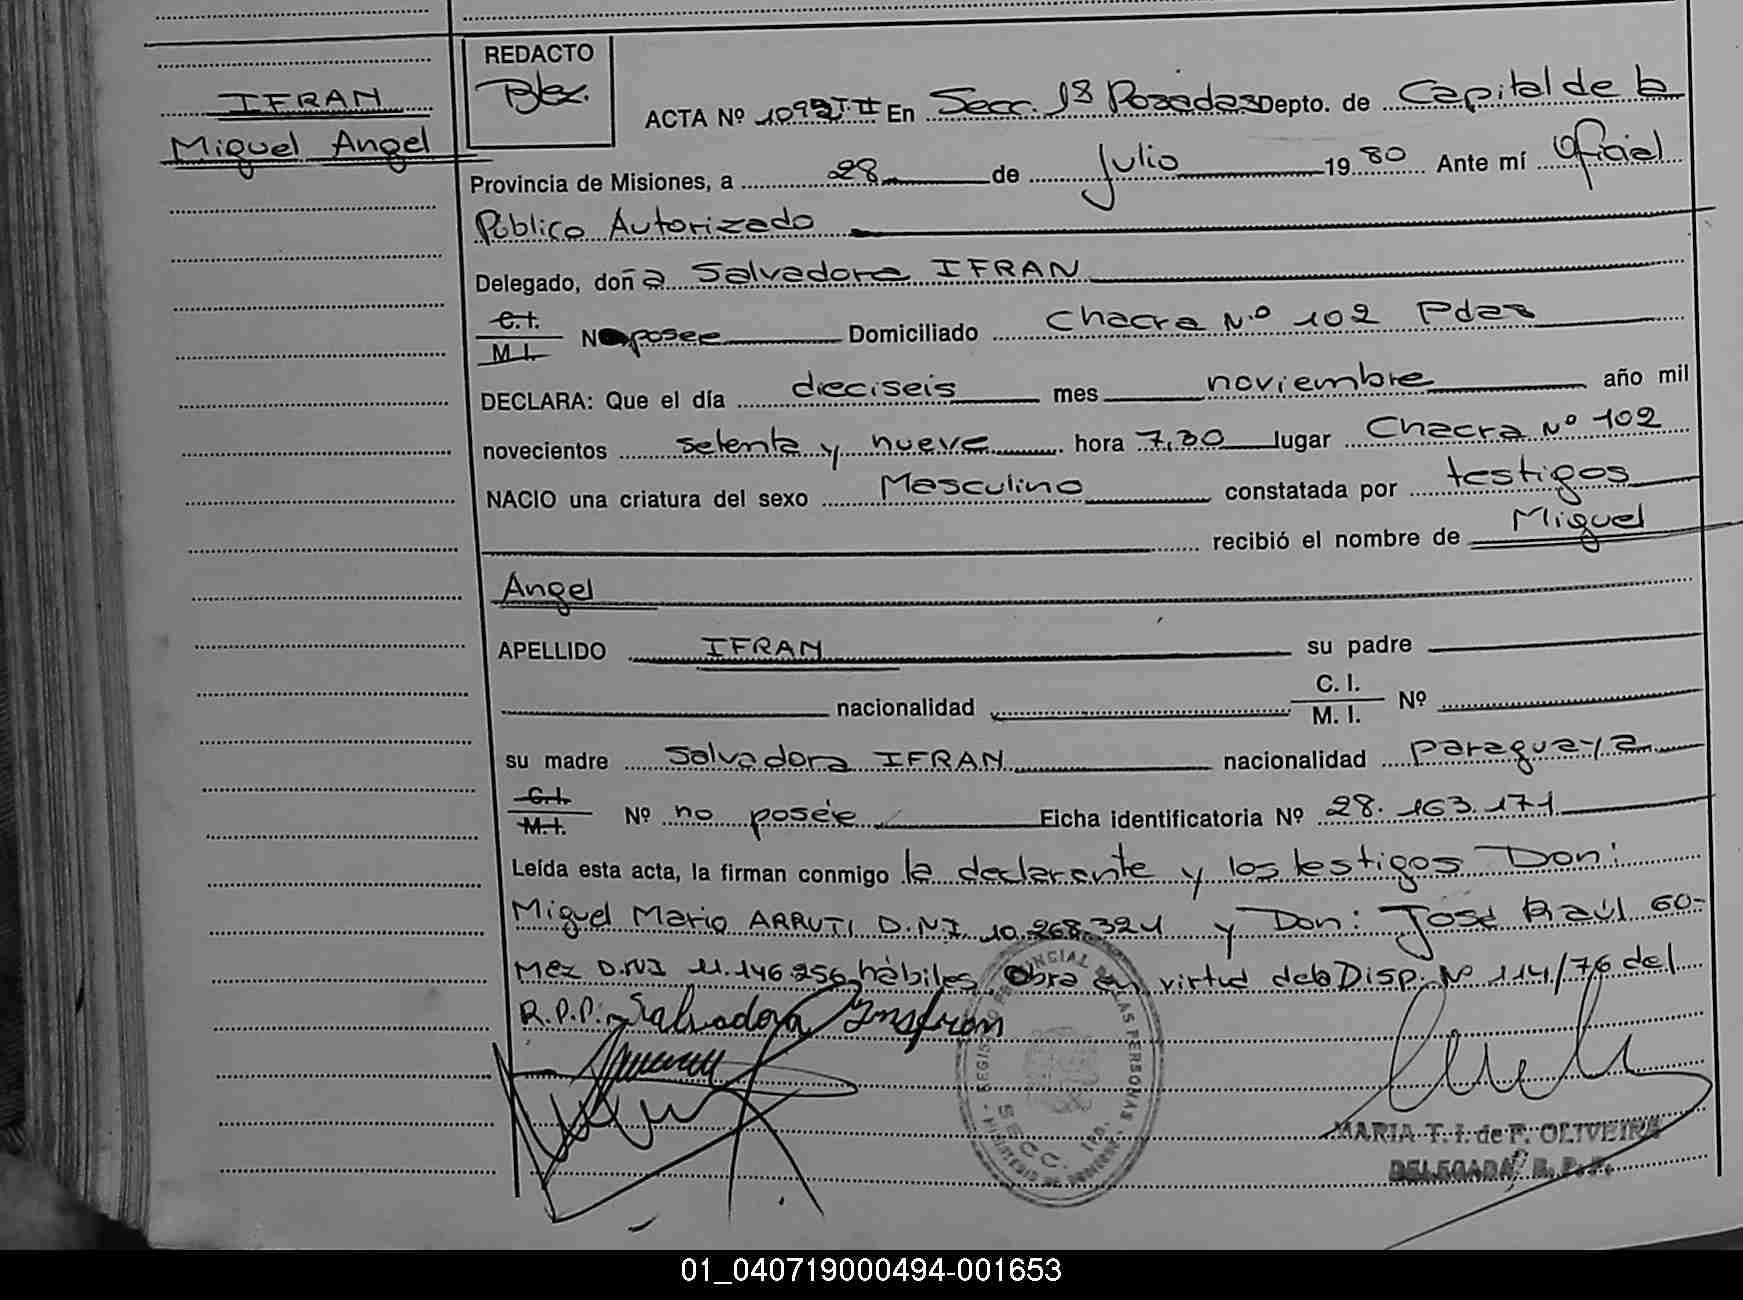 IFRAN
Miguel Angel
REDACTO
ACTA Nº 1092 TII En Secc. 1ª Posadas Depto. de Capital de la
Provincia de Misiones, a 28 de Julio 1980 Ante mí Oficial
Público Autorizado
Delegado, doña Salvadora IFRAN
C.I.
M.I. No posee Domiciliado Chacra N.º 102 Pdas
DECLARA: Que el día dieciseis mes noviembre año mil
novecientos setenta y nueve hora 7,30 lugar Chacra Nº 102
NACIO una criatura del sexo Masculino constatada por testigos
recibió el nombre de Miguel
Angel
APELLIDO IFRAN su padre
nacionalidad C. I.
M. I. Nº
su madre Salvadora IFRAN nacionalidad paraguaya
C.I.
M.I. Nº no posée Ficha identificatoria Nº 28.163.171
Leída esta acta, la firman conmigo la declarante y los testigos Don:
Miguel Mario ARRUTI D.N.I. 10.268.321 y Don: José Raúl Go-
mez D.N.I 11.146.256 hábiles. Obra en virtud de la Disp. Nº 114/76 del
R.P.P.- Salvadora Insfran
REGISTRO PROVINCIAL DE LAS PERSONAS
SECC. 1ra.
MARIA T. I. de F. OLIVEIRA
DELEGADA R. P. P.
01_040719000494-001653